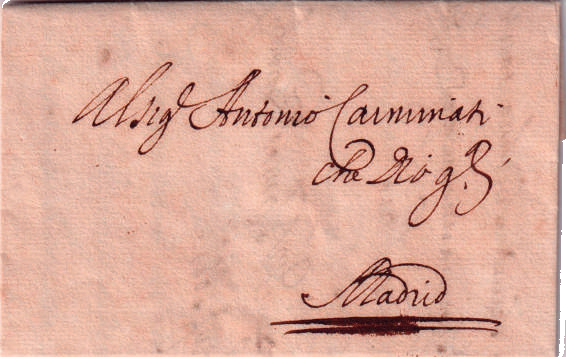 Al Sig.r Antonio Carminati
che Dio g.de
Madrid